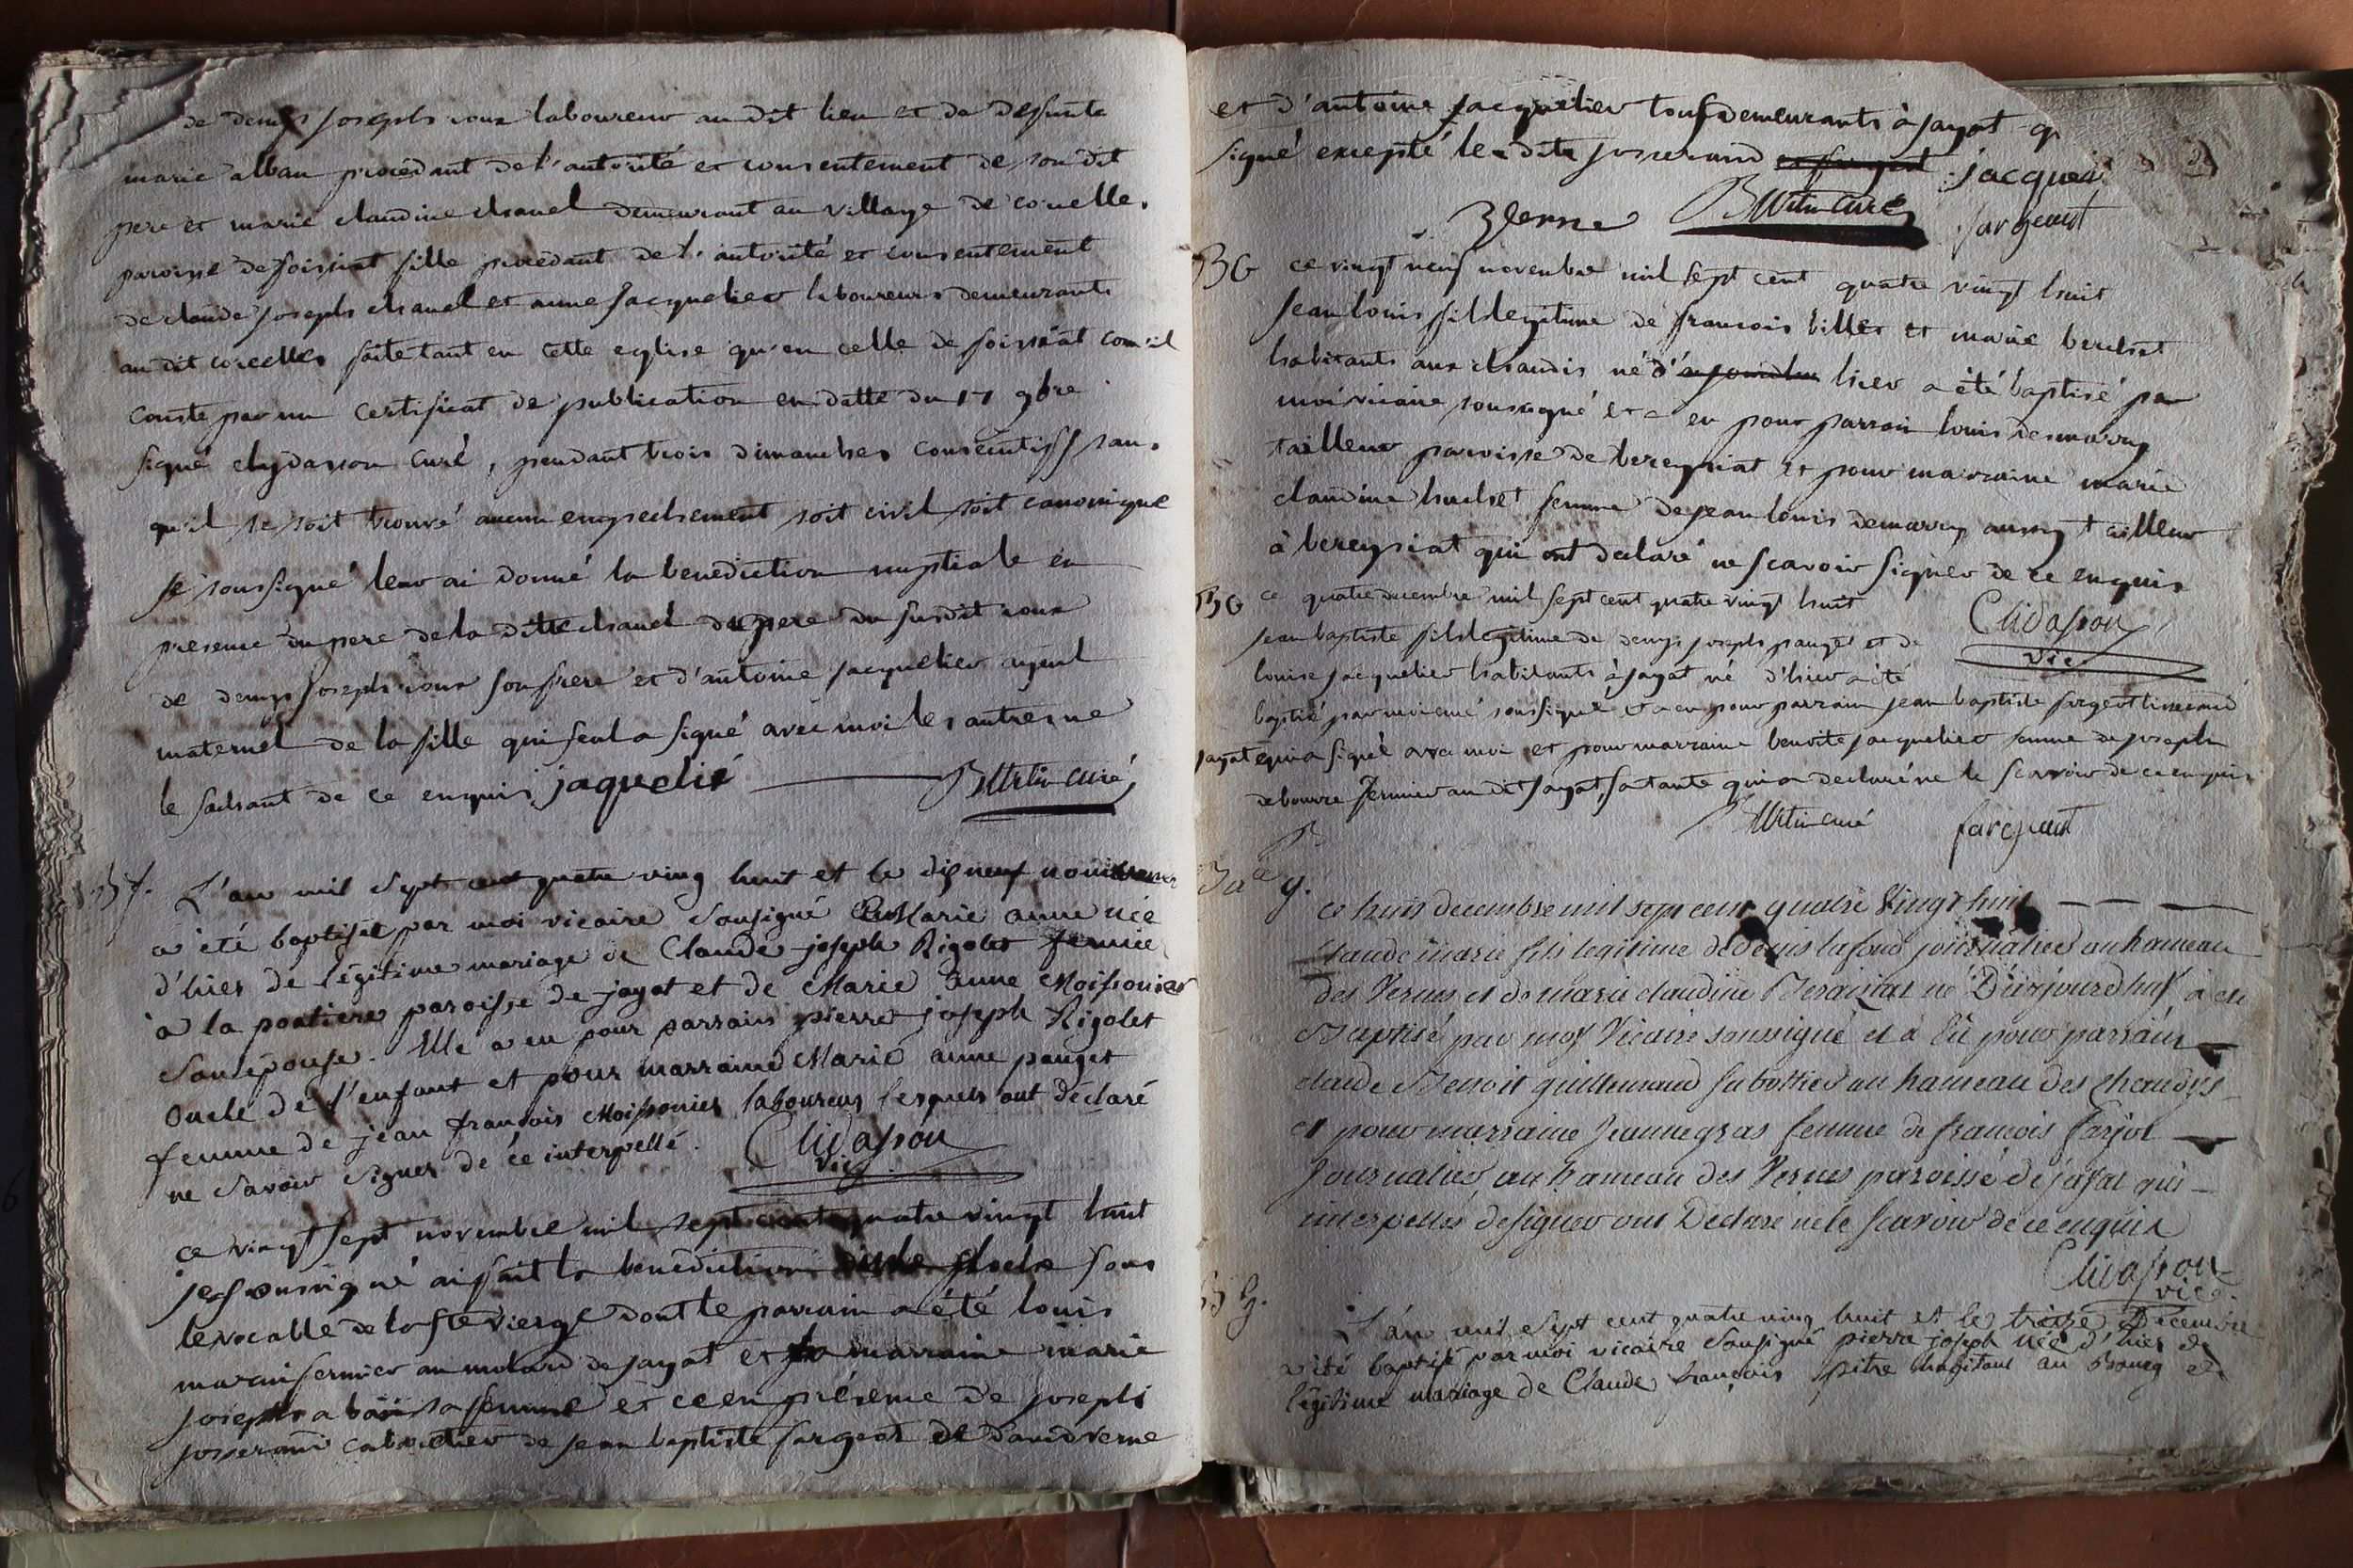 de denys joseph roux laboureur au dit lieu et de deffunte
marie alban procédant de l'autorité et consentement de son dit
pere et marie claudine chanel demeurant au village de corcelles
paroisse de foissiat fille procédant de l'autorité et consentement
de claude joseph chanel et anne jacquelier laboureurs demeurants
au dit corcelles faite tant en cette eglise qu'en celle de foissiat com'il
conste par un certificat de publication en datte du 17 9bre
signé clydasson curé, pendant trois dimanches consecutifs sans
qu'il se soit trouvé aucun empechement soit civil soit canonique
je soussigné leur ai donné la benediction nuptiale en
presence du pere de la ditte chanel du pere du susdit roux
de denys joseph roux son frere et d'antoine jacquelier ayeul
maternel de la fille qui seul a signé avec moi les autres ne
le sachant de ce enquis jaquelié BMtin curé
B f. L'an mil sept cent quatre ving huit et le dix neuf novembre
a été baptisée par moi vicaire sousigné Marie anne née
d'hier de légitime mariage de Claude joseph Rigolet fermier
à la poatiere paroisse de jayat et de Marie Anne Moissonier
son épouse. Elle a eu pour parrain pierre joseph Rigolet
oncle de l'enfant et pour marraine Marie anne pauget
femme de jean françois Moissonier laboureur lesquels ont déclaré
ne savoir signer de ce interpellé. Clidasson
vic
ce vingt sept novembre mil sept cent quatre vingt huit
je soussigné ai fait la benediction cloche sous
le vocable de la ste vierge dont le parrain a été louis
marin fermier au molard de jayat et la marraine marie
joseph sa femme et ce en présence de joseph
josserand cabaretier de jean baptiste fargeot de david verne
et d'antoine jacquelier tous demeurants à jayat
signé excepté le dit josserand jacquei
Verne BMtin curé fargeaut
BG ce vingt neuf novembre mil sept cent quatre vingt huit
jean louis fils legitime de françois billet et marie berchet
habitants aux chaudis né d' hier a été baptisé par
moi vicaire soussigné et a eu pour parrain louis desmaroy
tailleur paroisse de bereysiat et pour marraine marie
claudine huchet femme de jean louis demaroy aussy tailleur
à bereysiat qui ont declaré ne scavoir signer de ce enquis
BG ce quatre decembre mil sept cent quatre vingt huit Clidasson
vic
jean baptiste fils legitime de denys joseph pauget et de
louise jacquelier habitants à jayat né d'hier a été
baptisé par moi curé soussigné et a eu pour parrain jean baptiste fargeot
jayat qui a signé avec moi et pour marraine benoite jacquelier femme de joseph
debourre fermier au dit jayat, sa tante qui a declaré ne le scavoir de ce enquis
BMtin curé fargeaut
B g.
ce huit decembre mil sept cent quatre Vingt huit
claude marie fils legitime de denis lafond journalier au hameau
des Vernes et de marie claudine Beraisiat né D'aujourdhuy à été
Baptisé par moy Vicaire soussigné et à Eü pour parrain
claude Benoit guillemaud sabottier au hameau des Chaudys
et pour marraine Jeanne gras femme de francois farjot
Journalier au hameau des Vernes paroisse de jayat qui
interpellés de signer ont Declaré ne le scavoir de ce enquis
Clidasson
vic.
B g. L'an mil sept cent quatre ving huit et le treize Decembre
a été baptisé par moi vicaire sousigné pierre joseph née d'hier de
légitime mariage de Claude françois pitre habitant au Bourg et